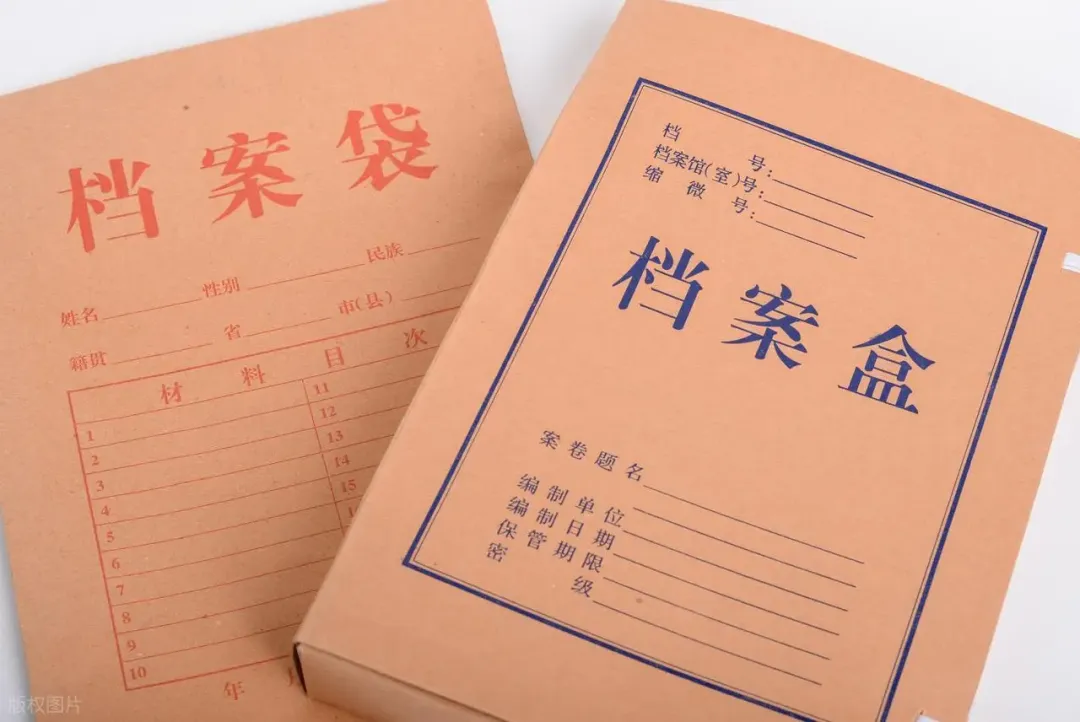 档案袋
姓名 性别 民族
籍贯 省 市(县)
材料目次
1 11
2 12
3 13
4 14
5 15
6
7
8
9
10
年
档号:
档案馆(室)号:
缩微号:
档案盒
案卷题名
编制单位
编制日期
保管期限
密级
版权图片